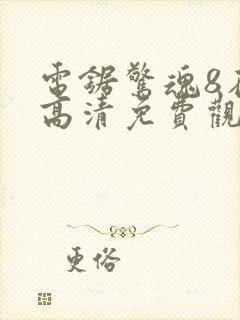 電鋸驚魂8
高清免費觀
更俗